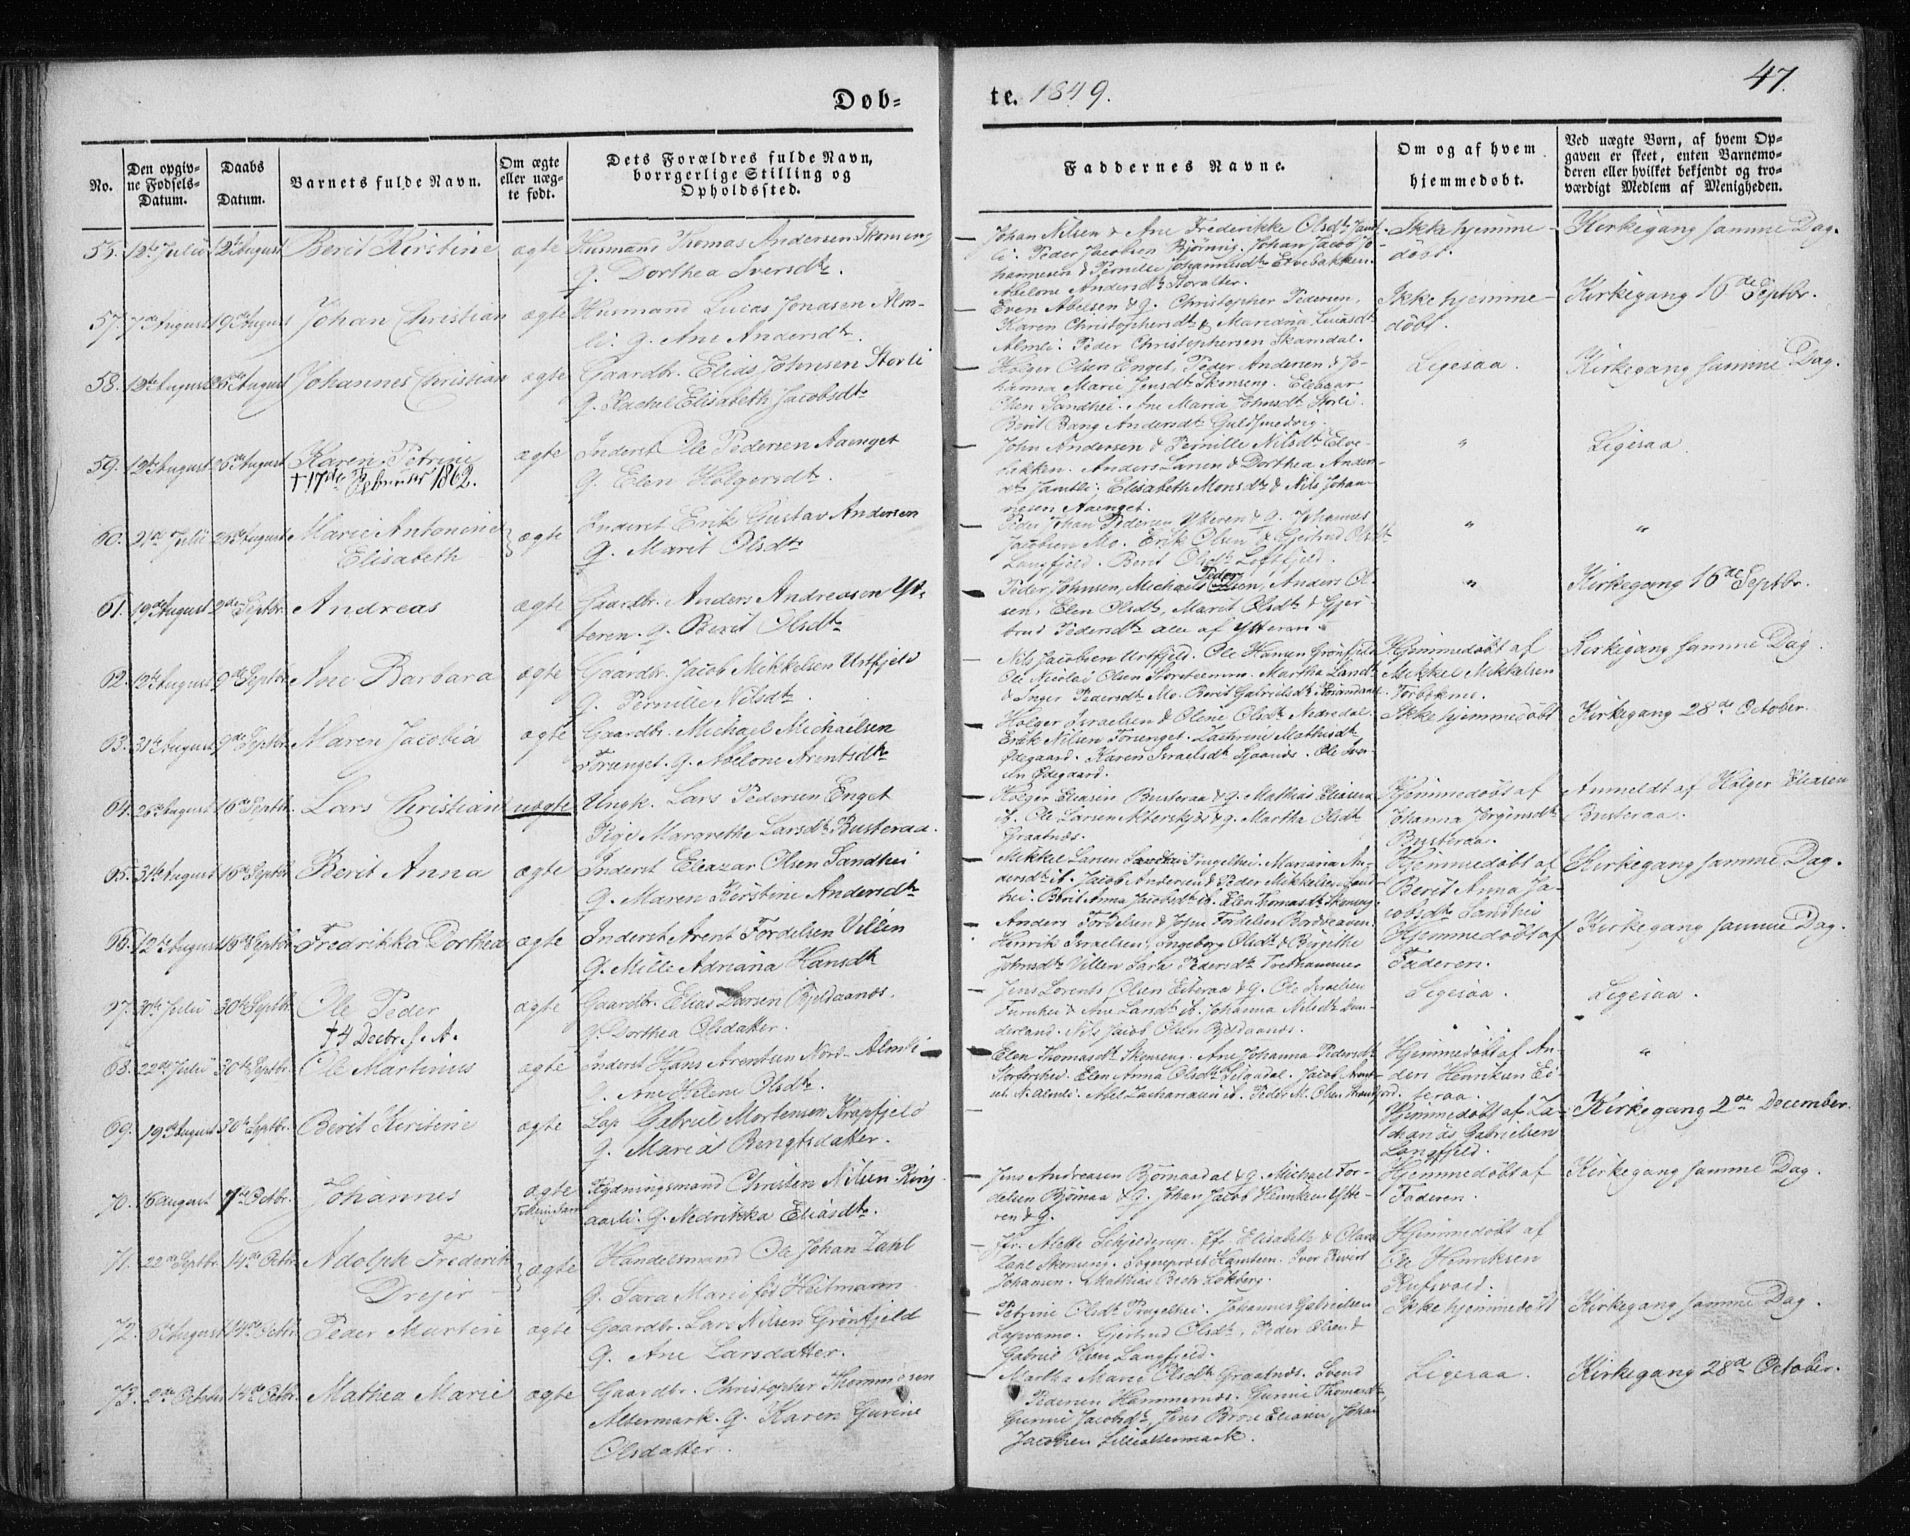 47.
Døb-
te. 1849.
No.
Den opgiv-
ne Fødsels-
Datum.
Daabs
Datum.
Barnets fulde Navn.
Om ægte
eller uæg-
te født.
Dets Forældres fulde Navn,
borrgerlige Stilling og
Opholdssted.
Faddernes Navne.
Om og af hvem
hjemmedøbt.
Ved uægte Børn, af hvem Op-
gaven er skeet, enten Barnemo-
deren eller hvilket bekjendt og tro-
værdigt Medlem af Menigheden.
12te Julii 12te August Berit Kirstine ægte Husmand Thomas Andersen Skonseng
g. Dorthea Iversdtr.
Johan Nilsen & Ane Frederikke Olsdtr
Peder Jacobsen Johan Jacob Jo-
hannesen & Pernille Johannesdtr
Abelone Andersdtr Storalter.
Ikke hjemme-
døbt.
Kirkegang samme Dag.
57. 7de August 19de August Johan Christian ægte Husmand Lucas Jonasen Alm-
li. g. Ane Andersdtr.
Even Abelsen & g. Christopher Pedersen,
Karen Christophersdtr & Mariana Lucasdtr
Almli. Peder Christophersen Skamdal.
Ikke hjemme-
døbt.
Kirkegang 16de Septbr.
58. 12te August 26de August Johannes Christian ægte Gaardbr. Elias Johnsen Storli
g. Rachel Elisabeth Jacobsdtr
Holger Olsen Enget, Peder Andersen & Jo-
hanna Marie Jensdtr Skonseng. Eleasar
Olsen Sandhei. Ane Maria Johnsdtr Storli.
Berit Bang Andersdtr Guldsmedvig.
Ligesaa.
Kirkegang samme Dag.
59. 12te August 26de August Karen Petrine
† 17de Februar 1862.
ægte Inderst Ole Pedersen Aaenget
g. Elen Holgersdtr.
John Andersen & Pernille Nilsdtr Elve-
bakken. Anders Larsen & Dorthea Anders-
dtr Jamtli; Elisabeth Monsdtr & Nils Johan-
nesen Aaenget.
"
Ligesaa
60. 21de Julii 26de August Marie Antonine
Elisabeth
ægte Inderst Erik Gustav Andersen
g. Marit Olsdtr
Peder Johan Pedersen Ytteren & g. Johannes
Jacobsen Mo. Erik Olsen & Gjertrud Olsdtr
Langfjeld. Berit Olsdtr Loftfjeld.
"
"
61. 19de August 2de Septbr. Andreas ægte Gaardbr. Anders Andreasen Yt-
teren. g. Berit Olsdtr
Peder Johnsen, Michael Peder Olsen, Anders Ol-
sen, Elen Olsdtr, Marit Olsdtr & Gjer-
trud Pedersdtr alle af Ytteren.
"
Kirkegang 16de Septbr.
62. 12te August 9de Septbr. Ane Barbara ægte Gaardbr. Jacob Mikkelsen Urtfjeld
g. Pernille Nilsdtr.
Nils Jacobsen Urtfjeld. Ole Hansen Grønfjeld
Ole Nicolai Olsen Martha Larsdtr
& Inger Pedersdtr Mo. Berit Gabrielsdtr
Hjemmedøbt af
Mikkel Mikkelsen
Kirkegang samme Dag.
63. 31te August 9de Septbr. Maren Jacobia ægte Gaardbr. Michael Michaelsen
Foranget. g. Abelone Arentsdtr
Holger Israelsen & Olene Olsdtr
Erik Nilsen Foranget. Mathisdtr
Ødegaard. Karen Israelsdtr Ole Iver-
sen Ødegaard.
Ikke hjemmedøbt
Kirkegang 28de October.
64. 26de August 16de Septbr. Lars Christian uægte Ungk. Lars Pedersen Enget
Pige Margrethe Larsdtr Busteraa.
Holger Eliasen Busteraa & g. Mathias Eliasen
ib. Ole Larsen & g. Martha Olsdtr
Graatnæs.
Hjemmedøbt af
Johanna Jørgensdtr
Busteraa.
Anmeldt af Holger Eliasen
Busteraa.
65. 31te August 16de Septbr. Berit Anna ægte Inderst Eleazar Olsen Sandhei
g. Maren Kirstine Andersdtr
Mikkel Larsen Tingelhei. Mariana An-
dersdtr ib. Jacob Andersen & Peder Mikkelsen Sand-
hei. Berit Anna Jacobsdtr ib. Elen Thomasdtr Skonseng.
Hjemmedøbt af
Berit Anna Ja-
cobsdtr Sandhei
Kirkegang samme Dag.
66. 12te August 16de Septbr. Fredrikka Dorthea ægte Inderst Arent Fordelsen Villen
g. Milli Adriana Hansdtr
Anders Fordelsen &
Henrik Israelsen, Ingeborg Olsdtr & Birgithe
Johnsdtr Villen Sara Pedersdtr
Hjemmedøbt af
Faderen.
Kirkegang samme Dag.
30te Julii 30te Septbr. Ole Peder
† 4 Decbr. s. A.
ægte Gaardbr. Elias Larsen
g. Dorthea Olsdatter.
Jens Lorents Olsen Eiteraa & g. Ole Israelsen
& Ane Larsdtr ib. Johanna Nilsdtr Dun-
derland. Nils Jacob Olsen
Ligesaa.
Ligesaa.
68. 22de Julii 30te Septbr. Ole Martinus ægte Inderst Hans Arentsen Nord-Almli
g. Ane Helene Olsdtr.
Elen Thomasdtr Skonseng. Ane Johanna Pedersdtr
Elen Anna Olsdtr Jacob Arent-
sen N. Almli. Abel Zachariasen ib. Peder M. Olsen
Hjemmedøbt af An-
ders Henriksen Ei-
teraa.
"
69. 19de August 30te Septbr. Berit Kirstine ægte Lap Gabriel Mortensen Kropfjeld
g. Maria Bengtsdatter.
Hjemmedøbt af Za-
charias Gabrielsen
Langfjeld.
Kirkegang 2den December.
70. 6 August 7de Octbr. Johannes ægte
Rydningsmand Christen Nilsen Ring-
aasli. g. Nedrikka Eliasdtr.
Jens Andreasen Bjørnaadal & g. Michael For-
delsen Bjørnaa & g. Johan Jacob Henriksen Ytte-
ren & g.
Hjemmedøbt af
Faderen.
Kirkegang samme Dag.
71. 22de Septbr. 14de Octbr. Adolph Frederik
Drejer
ægte Handelsmand Ole Johan Zahl
g. Sara Marie fød Heitmann
Jfr. Alette Schjelderup. Jfr. Elisabeth &
Zahl Skonseng. Sogneprest Iver
Johansen. Mathias Bech Løkberg.
Hjemmedøbt af
Ole Henriksen
Rufsvold.
72. August 14de Octbr. Peder Martin ægte Gaardbr. Lars Nilsen Grønfjeld
g. Ane Larsdatter.
Petrine Olsdtr Tingelhei. Johannes Gabrielsen
Gjertrud Olsdtr, Peder Olsen &
Gabriel Olsen Langfjeld.
Ikke hjemmedøbt
Kirkegang samme Dag.
73. 2de October 14de Octbr. Mathea Marie ægte Gaardbr. Christopher Thommesen
Altermark. g. Karen Gurine
Olsdatter.
Martha Marie Olsdtr Graatnæs. Svend
Pedersen Hammernæs. Gurine Thomasdtr,
Gurine Jacobsdtr, Jens Brose Eliasen, Johan
Jacobsen Lillealtermark.
Ligesaa.
Kirkegang 28de October.